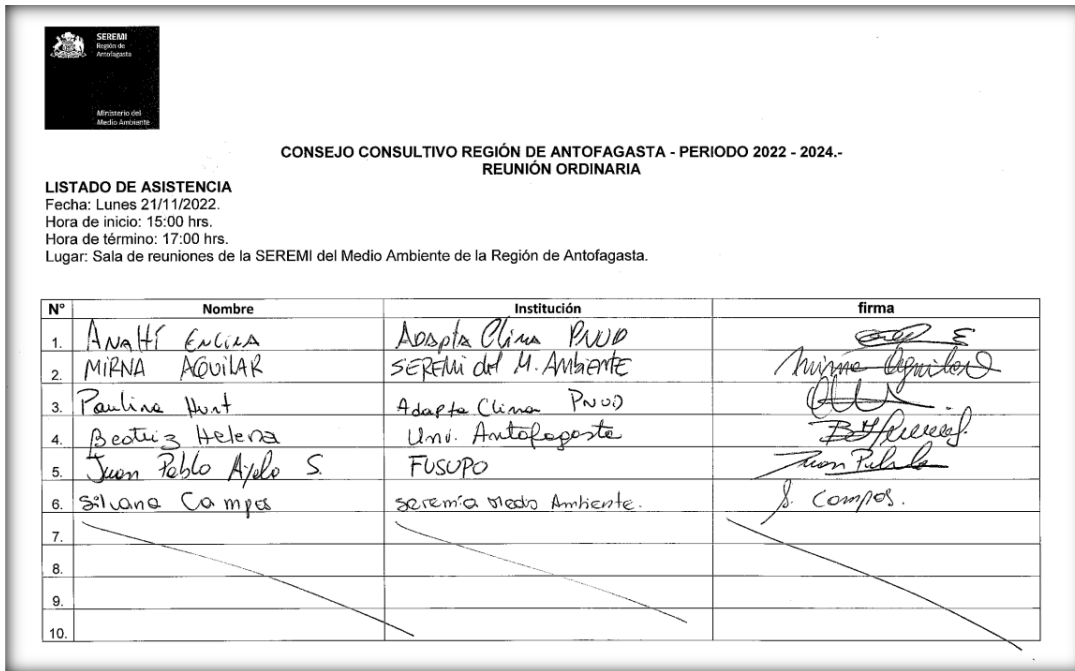 SEREMI
Región de
Antofagasta
Ministerio del
Medio Ambiente
CONSEJO CONSULTIVO REGIÓN DE ANTOFAGASTA - PERIODO 2022 - 2024.-
REUNIÓN ORDINARIA
LISTADO DE ASISTENCIA
Fecha: Lunes 21/11/2022.
Hora de inicio: 15:00 hrs.
Hora de término: 17:00 hrs.
Lugar: Sala de reuniones de la SEREMI del Medio Ambiente de la Región de Antofagasta.
N° Nombre Institución firma
1. Anahí Encina Adapta Clima PNUD
2. MIRNA AGUILAR SEREMI del M. Ambiente Mirna Aguilar
3. Paulina Hunt Adapta Clima PNUD
4. Beatriz Helena Univ. Antofagasta
5. Juan Pablo S. FUSUPO Juan Pablo
6. Silvana Campos Seremía Medio Ambiente. S. Campos.
7.
8.
9.
10.